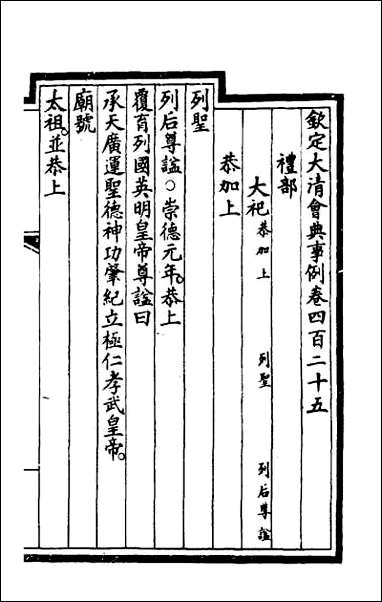 欽定大清會典事例卷四百二十五
禮部
大祀恭加上 列聖 列后尊諡
恭加上
列聖
列后尊諡○崇德元年恭上
覆育列國英明皇帝尊諡曰
承天廣運聖德神功肇紀立極仁孝武皇帝
廟號
太祖並恭上